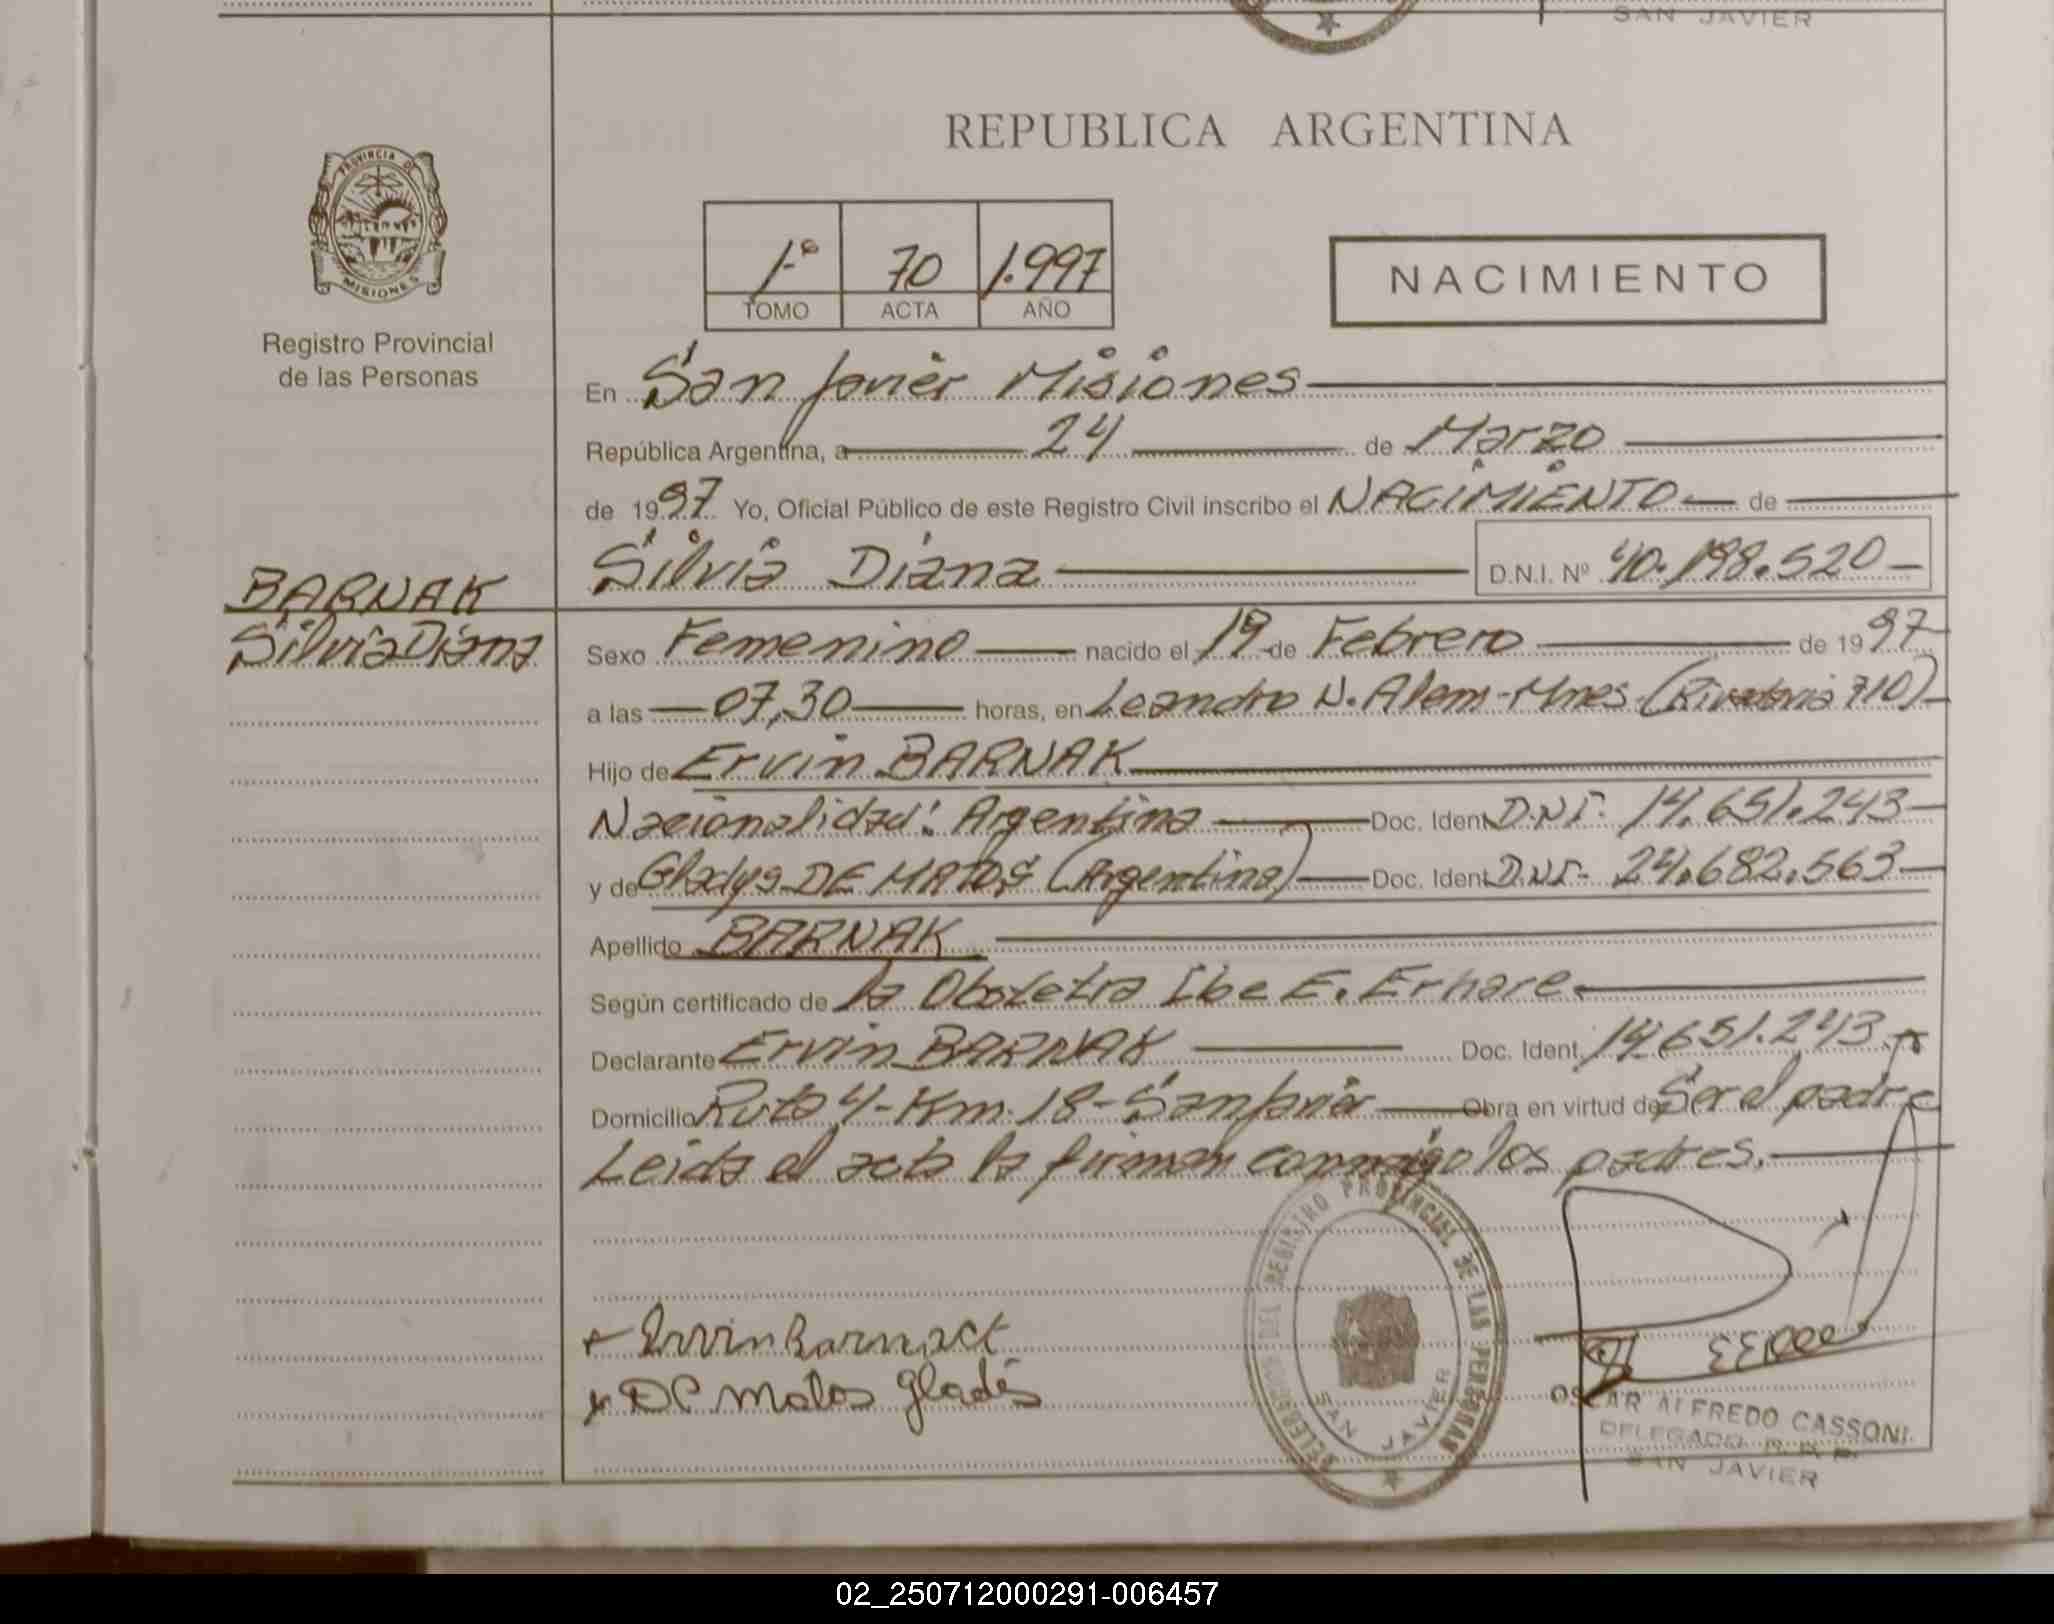 SAN JAVIER
REPUBLICA ARGENTINA
PROVINCIA DE
MISIONES
Registro Provincial
de las Personas
1º 70 1.997
TOMO ACTA AÑO
NACIMIENTO
En San Javier Misiones
República Argentina, a 24 de Marzo
de 1997 Yo, Oficial Público de este Registro Civil inscribo el NACIMIENTO de
Silvia Diana D.N.I. Nº 40.198.520
BARNAK
Silvia Diana
Sexo Femenino nacido el 19 de Febrero de 1997
a las 07,30 horas, en Leandro N. Alem-Mnes-(Rivadavia 710)
Hijo de Ervin BARNAK
Nacionalidad: Argentina Doc. Ident D.N.I. 14.651.243
y de Gladys DE MATOS (Argentina) Doc. Ident D.N.I. 24.682.563
Apellido BARNAK
Según certificado de la Obstetra Ibe E. Erhare.
Declarante Ervin BARNAK Doc. Ident. 14.651.243
Domicilio Ruta 4-Km. 18-San Javier Obra en virtud de Ser el padre
Leida el acta la firman conmigo los padres.
DELEGACION DEL REGISTRO PROVINCIAL DE LAS PERSONAS
SAN JAVIER
Ervin Barnack
De Matos gladis
OSCAR ALFREDO CASSONI
DELEGADO R.R.P.
SAN JAVIER
02_250712000291-006457